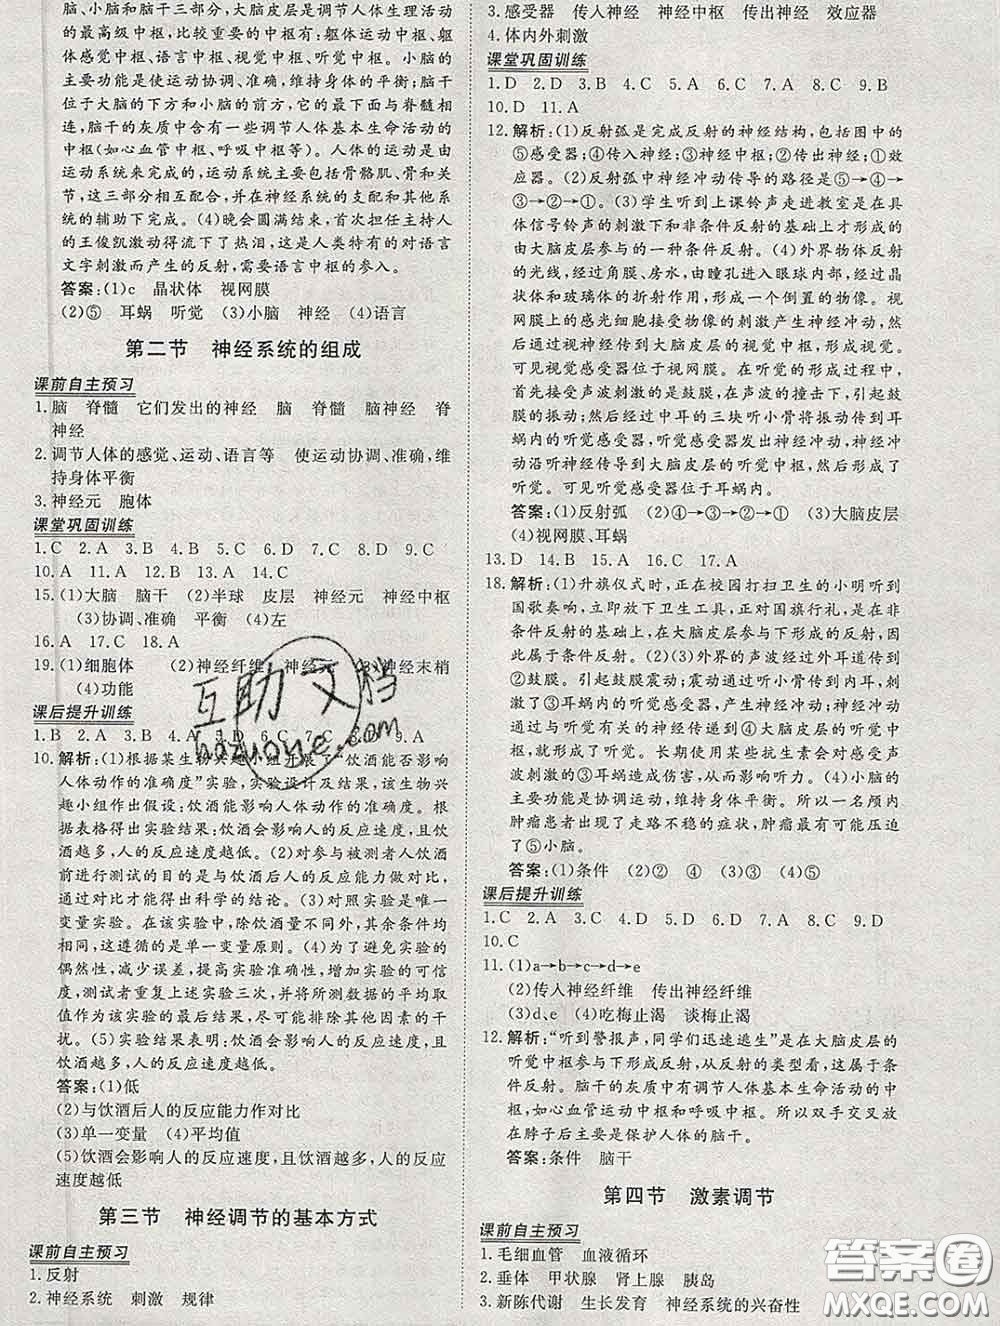 脑、小脑和脑干三部分,大脑皮层是调节人体生理活动
的最高级中枢,比较重要的中枢有:躯体运动中枢、躯
体感觉中枢、语言中枢、视觉中枢、听觉中枢。小脑的
主要功能是使运动协调、准确,维持身体的平衡;脑干
位于大脑的下方和小脑的前方,它的最下面与脊髓相
连,脑干的灰质中含有一些调节人体基本生命活动的
中枢(如心血管中枢、呼吸中枢等)。人体的运动是由
运动系统来完成的,运动系统主要包括骨骼肌、骨和关
节,这三部分相互配合,并在神经系统的支配和其他系
统的辅助下完成。(4)晚会圆满结束,首次担任主持人
的王俊凯激动得流下了热泪,这是人类特有的对语言
文字刺激而产生的反射,需要语言中枢的参入。
答案:(1)c 晶状体 视网膜
(2)⑤ 耳蜗 听觉 (3)小脑 神经 (4)语言
第二节 神经系统的组成
课前自主预习
1.脑 脊髓 它们发出的神经 脑 脊髓 脑神经 脊
神经
2.调节人体的感觉、运动、语言等 使运动协调、准确,维
持身体平衡
3.神经元 胞体
课堂巩固训练
1.C 2.A 3.B 4.B 5.C 6.D 7.B 8.D 9.C
10.A 11.A 12.B 13.A 14.C
15.(1)大脑 脑干 (2)半球 皮层 神经元 神经中枢
(3)协调、准确 平衡 (4)左
16.A 17.C 18.A
19.(1)细胞体 (2)神经纤维 神经元 (3)神经末梢
(4)功能
课后提升训练
1.B 2.A 3.B 4.D 5.C 6.C 7.C 8.A 9.A
10.解析:(1)根据某生物兴趣小组开展了“饮酒能否影响
人体动作的准确度”实验,实验设计及结果,该生物兴
趣小组作出假设:饮酒能影响人体动作的准确度。根
据表格得出实验结果:饮酒会影响人的反应速度,且饮
酒越多,人的反应速度越低。(2)对参与被测者人饮酒
前进行测试的目的是与饮酒后人的反应能力作对比,
通过对比才能得出科学的结论。(3)对照实验是唯一
变量实验。在该实验中,除饮酒量不同外,其余条件均
相同,这遵循的是单一变量原则。(4)为了避免实验的
偶然性,减少误差,提高实验准确性,增加实验的可信
度,测试者重复上述实验三次,并将所测数据的平均取
值作为该实验的最后结果,尽可能排除其他因素的干
扰。(5)实验结果表明:饮酒会影响人的反应速度,且
饮酒越多,人的反应速度越低。
答案:(1)低
(2)与饮酒后人的反应能力作对比
(3)单一变量 (4)平均值
(5)饮酒会影响人的反应速度,且饮酒越多,人的反应
速度越低
第三节 神经调节的基本方式
课前自主预习
1.反射
2.神经系统 刺激 规律
3.感受器 传入神经 神经中枢 传出神经 效应器
4.体内外刺激
课堂巩固训练
1.D 2.D 3.B 4.C 5.A 6.C 7.C 8.A 9.B
10.D 11.A
12.解析:(1)反射弧是完成反射的神经结构,包括图中的
⑤感受器;④传入神经;③神经中枢;②传出神经;①效
应器。(2)反射弧中神经冲动传导的路径是⑤→④→
③→②→①。(3)学生听到上课铃声走进教室是在具
体信号铃声的刺激下和非条件反射的基础上才形成的
由大脑皮层参与的一种条件反射。(4)外界物体反射
的光线,经过角膜、房水,由瞳孔进入眼球内部,经过晶
状体和玻璃体的折射作用,形成一个倒置的物像。视
网膜上的感光细胞接受物像的刺激产生神经冲动,然
后通过视神经传到大脑皮层的视觉中枢,形成视觉。
可见视觉感受器位于视网膜。在听觉的形成过程中,
首先接受声波刺激的是鼓膜,在声波的撞击下,引起鼓
膜的振动;然后经过中耳的三块听小骨将振动传到耳
蜗内的听觉感受器,听觉感受器发出神经冲动,神经冲
动沿听神经传导到大脑皮层的听觉中枢,然后形成了
听觉。可见听觉感受器位于耳蜗内。
答案:(1)反射弧 (2)④→③→②→① (3)大脑皮层
(4)视网膜、耳蜗
13.D 14.B 15.A 16.C 17.A
18.解析:(1)升旗仪式时,正在校园打扫卫生的小明听到
国歌奏响,立即放下卫生工具,正对国旗行礼,是在非
条件反射的基础上,在大脑皮层参与下完成的反射,因
此属于条件反射。(2)(3)外界的声波通过外耳道传到
②鼓膜。引起鼓膜震动;震动通过听小骨传到内耳,刺
激了③耳蜗内的听觉感受器,产生神经冲动;神经冲动
通过与听觉有关的神经传递到④大脑皮层的听觉中
枢,就形成了听觉。长期使用某些抗生素会对感受声
波刺激的③耳蜗造成损害,从而影响听力。(4)小脑的
主要功能是协调运动,维持身体平衡。所以一名颅内
肿瘤患者出现了走路不稳的症状,肿瘤最有可能压迫
了⑤小脑。
答案:(1)条件 (2)② ④ (3)③ (4)⑤
课后提升训练
1.C 2.A 3.C 4.D 5.D 6.D 7.A 8.C 9.D
10.C
11.(1)a→b→c→d→e
(2)传入神经纤维 传出神经纤维
(3)d、e (4)吃梅止渴 谈梅止渴
12.解析:“听到警报声,同学们迅速逃生”是在大脑皮层的
听觉中枢参与下形成反射,从反射的类型看,这属于条
件反射。脑干的灰质中有调节人体基本生命活动的中
枢,如心血管运动中枢和呼吸中枢。所以双手交叉放
在脖子后主要是保护人体的脑干。
答案:条件 脑干
第四节 激素调节
课前自主预习
1.毛细血管 血液循环
2.垂体 甲状腺 肾上腺 胰岛
3.新陈代谢 生长发育 神经系统的兴奋性
互助文档
hozuoye.com
答案圈
MXQE.COM